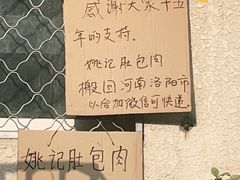 感谢大家十五
年的支持.
姚记肚包肉
搬回河南洛阳市
以后加微信可快递
姚记肚包肉